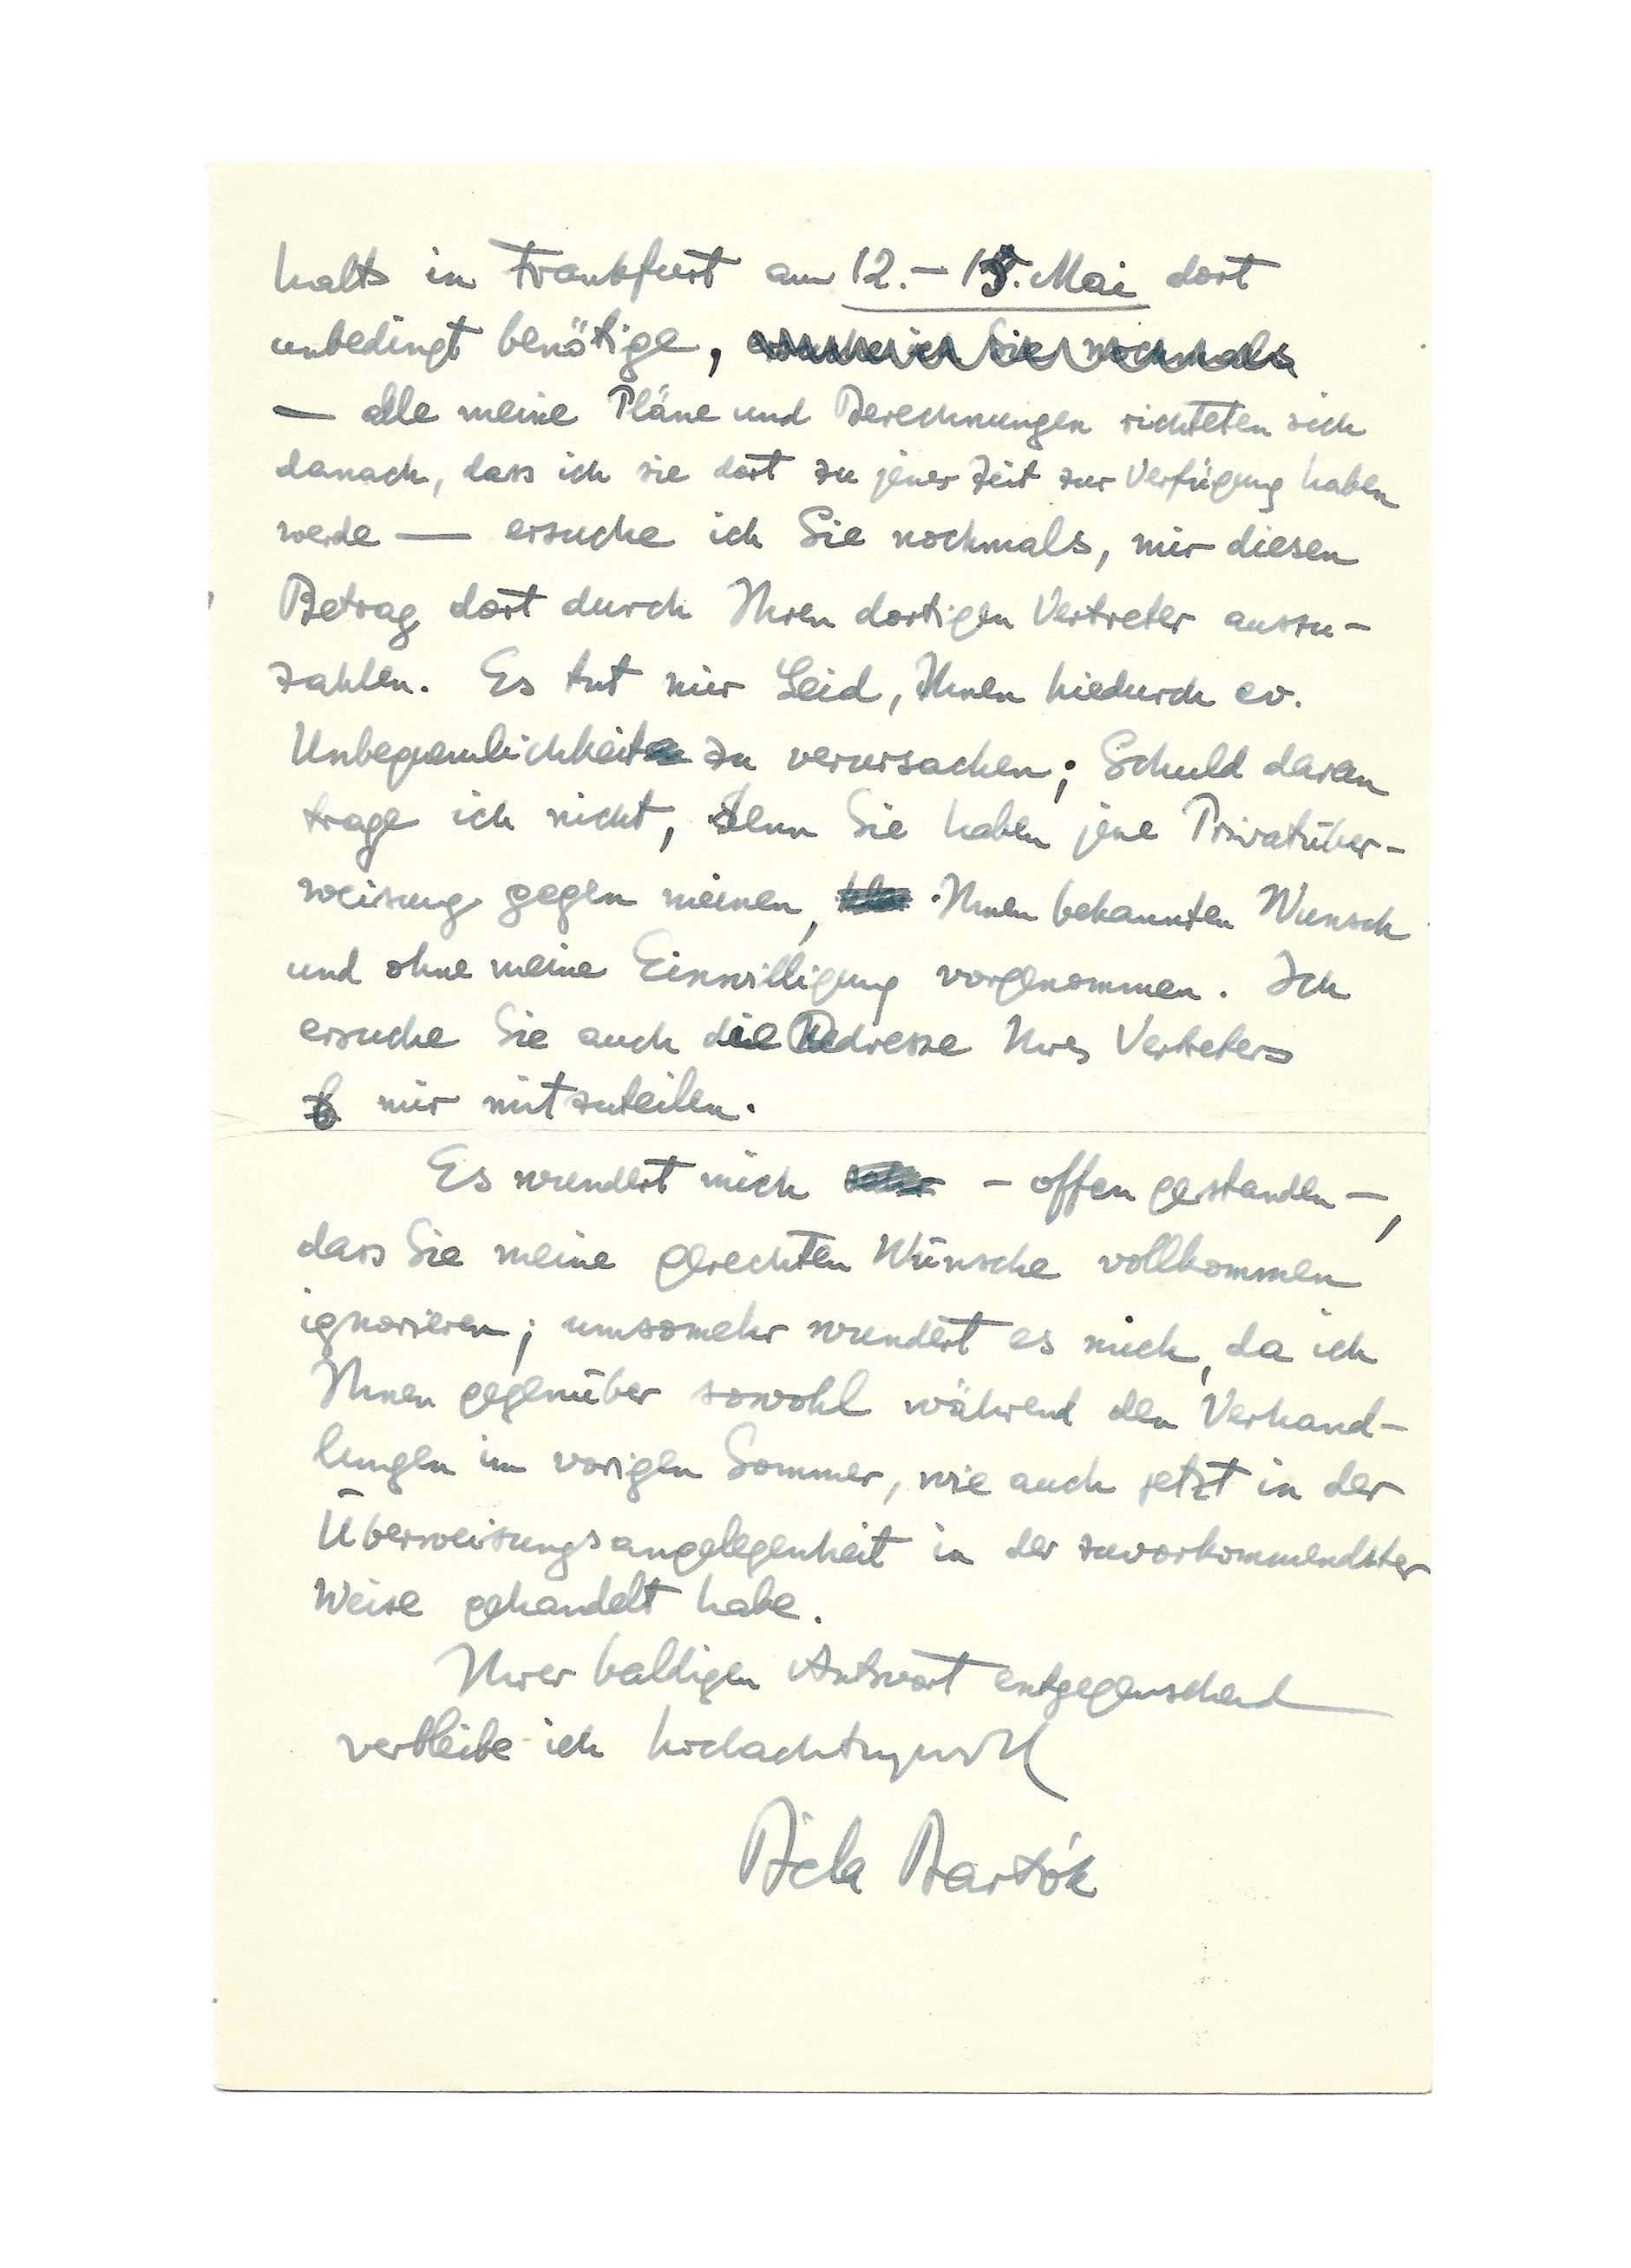 halts in Frankfurt am 12.–15. Mai dort
unbedingt benötige, ersuche ich Sie nochmals
— alle meine Pläne und Berechnungen richteten sich
danach, dass ich sie dort zu jener Zeit zur Verfügung haben
werde — ersuche ich Sie nochmals, mir diesen
Betrag dort durch Ihren dortigen Vertreter auszu-
zahlen. Es tut mir Leid, Ihnen hiedurch ev.
Unbequemlichkeit zu verursachen; Schuld daran
trage ich nicht, denn Sie haben jene Privatüber-
weisung gegen meinen, Ihnen bekannten Wunsch
und ohne meine Einwilligung vorgenommen. Ich
ersuche Sie auch die Adresse Ihres Vertreters
mir mitzuteilen.
Es wundert mich – offen gestanden –,
dass Sie meine gerechten Wünsche vollkommen
ignorieren; umsomehr wundert es mich, da ich
Ihnen gegenüber sowohl während den Verhand-
lungen im vorigen Sommer, wie auch jetzt in der
Überweisungsangelegenheit in der zuvorkommendster
Weise gehandelt habe.
Ihrer baldigen Antwort entgegensehend
verbleibe ich hochachtungsvoll
Béla Bartók